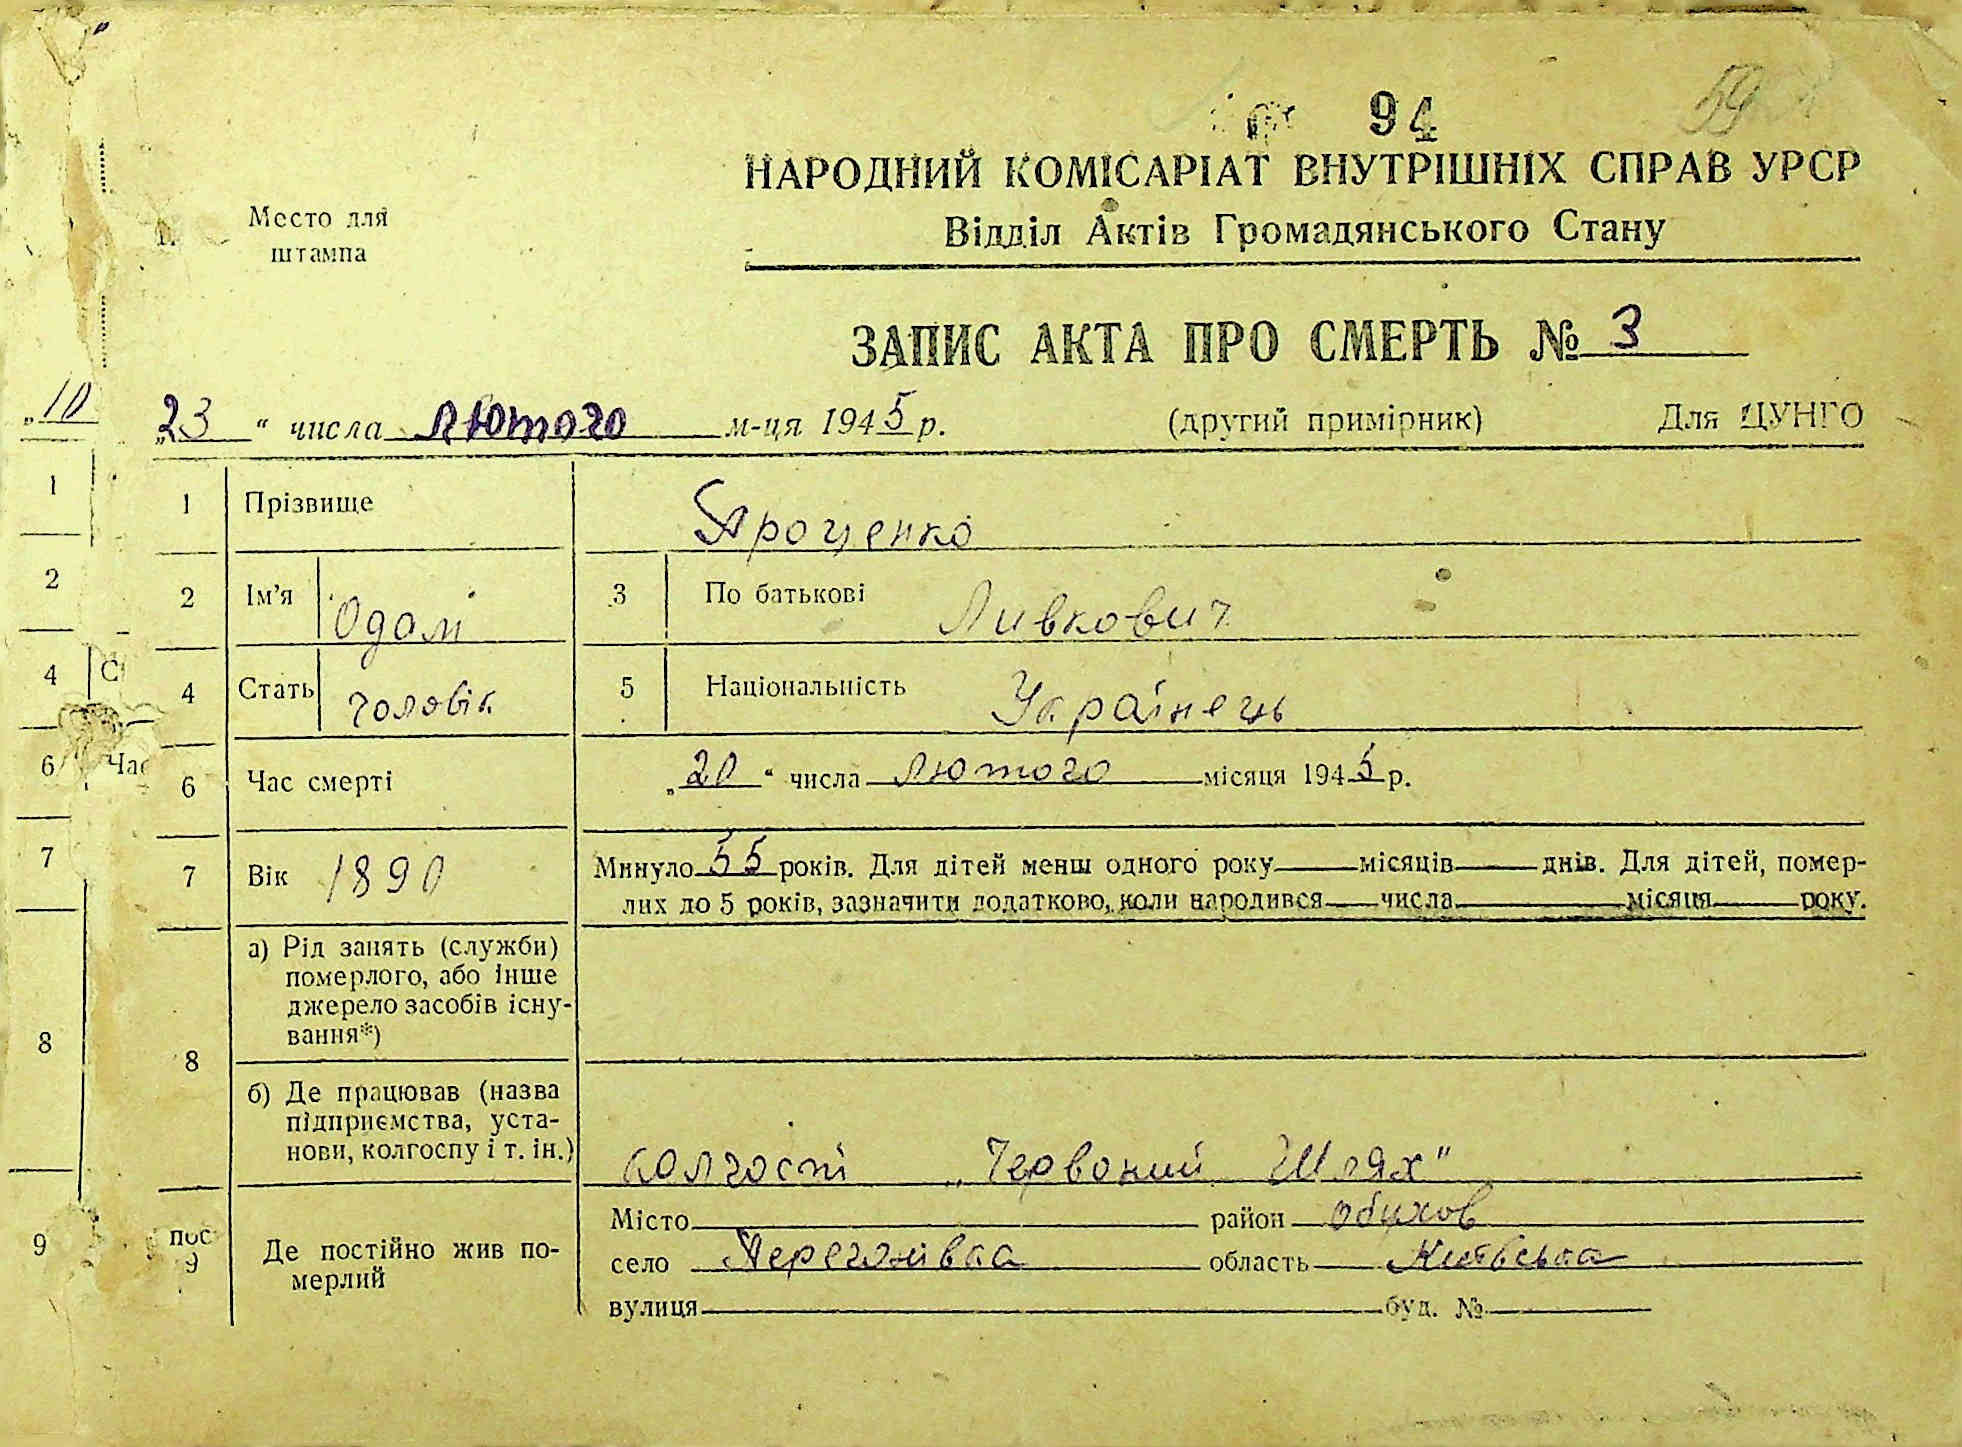 94
59
НАРОДНИЙ КОМІСАРІАТ ВНУТРІШНІХ СПРАВ УРСР
Место для
штампа
Відділ Актів Громадянського Стану
ЗАПИС АКТА ПРО СМЕРТЬ № 3
„10
„23 “ числа лютого м-ця 1945 р. (другий примірник) Для ЦУНГО
1 1 Прізвище Яроценко
2 2 Ім'я Одам 3 По батькові Ливкович
4 С 4 Стать чоловік 5 Національність Українець
6 Час 6 Час смерті „20 “ числа лютого місяця 1945 р.
7 7 Вік 1890 Минуло 55 років. Для дітей менш одного року місяців днів. Для дітей, помер-
лих до 5 років, зазначити додатково, коли народився числа місяця року.
а) Рід занять (служби)
померлого, або інше
джерело засобів існу-
вання*)
8 8
б) Де працював (назва
підприємства, уста-
нови, колгоспу і т. ін.) колгоспі „Червоний Шлях“
Місто район Обухов
9 пос 9 Де постійно жив по-
мерлий
село Перегонівка область Київська
вулиця буд. №